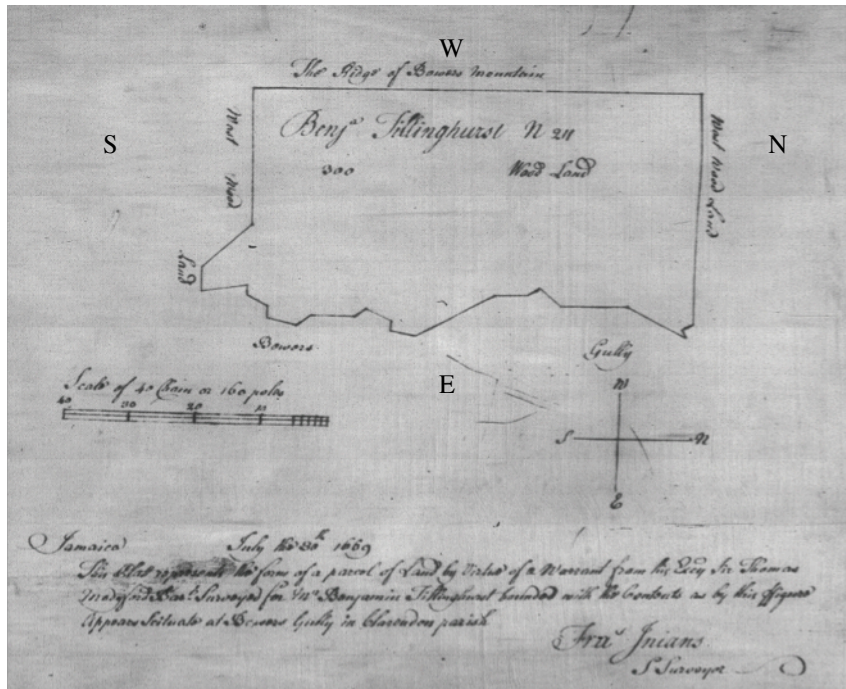 W
The Ridge of Bowers Mountain
Benjᵃ Tillinghurst N 211
300 Wood Land
S
N
West Wood Land
West Wood Land
Bowers
Gully
E
Scale of 40 Chain or 160 poles
40 30 20 10
W
S N
E
Jamaica July the 30th 1669
This Plat represents the form of a parcel of Land by Virtue of a Warrant from his Excy Sir Thomas
Modyford Bart. Surveyed for Mr Benjamin Tillinghurst bounded with the Contents as by this ffigure
Appears Scituate at Bowers Gully in Clarendon parish
Fras Inians
S Surveyor